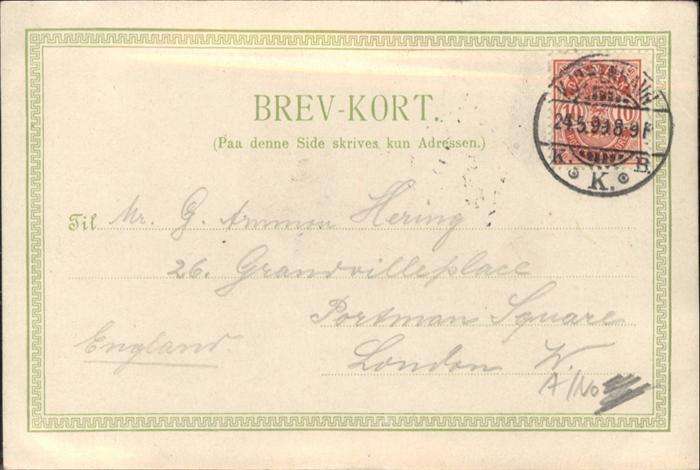 BREV-KORT.
(Paa denne Side skrives kun Adressen.)
10 10
KJØBENHAVN
24.5.99 8-9 F
K. K. B.
Til Mr. G. Ammon Hering
26. Grandvilleplace
Portman Square
England
London W.
A/No